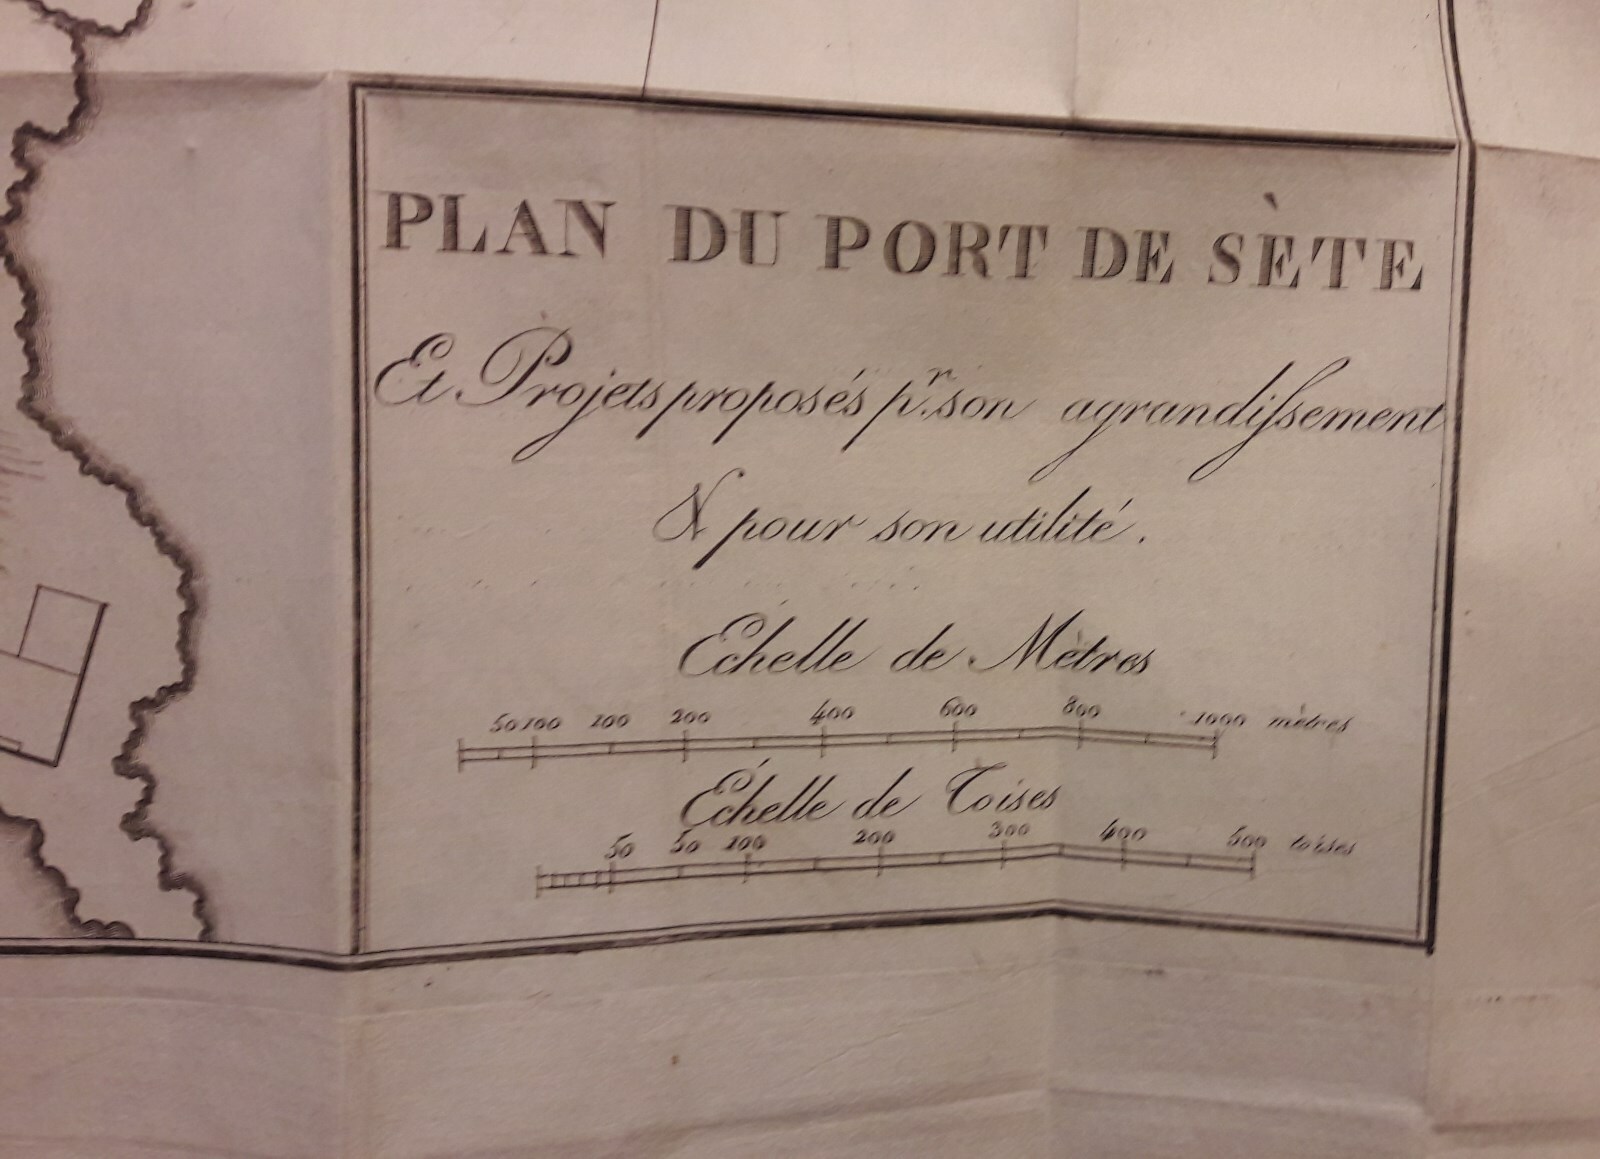 PLAN DU PORT DE SÈTE
Et Projets proposés pr. son agrandissement
& pour son utilité.
Echelle de Mètres
50 100 100 200 400 600 800 1000 mètres
Échelle de Toises
50 50 100 200 300 400 500 toises